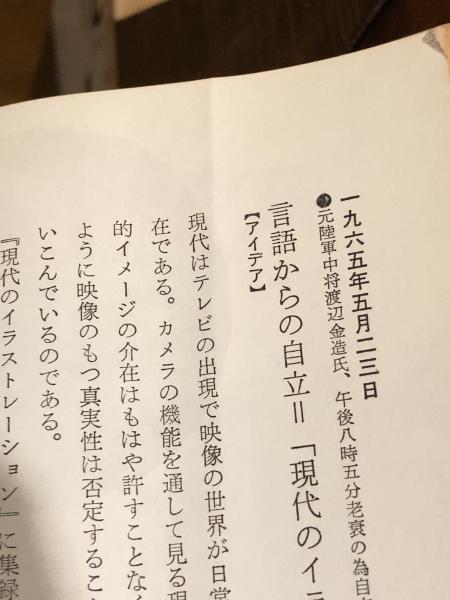 一九六五年五月二三日
●元陸軍中将渡辺金造氏、午後八時五分老衰の為自
言語からの自立＝「現代のイラ
【アイデア】
現代はテレビの出現で映像の世界が日常
在である。カメラの機能を通して見る現
的イメージの介在はもはや許すことなく
ように映像のもつ真実性は否定すること
いこんでいるのである。
『現代のイラストレーション』に集録